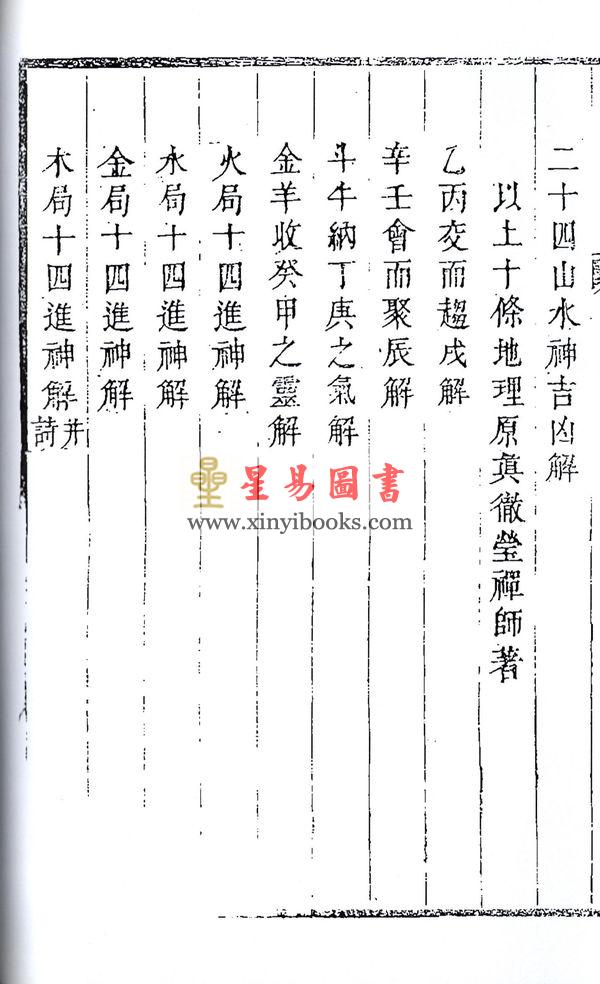 二十四山水神吉凶解
以上十條地理原真徹瑩禪師著
乙丙交而趨戌解
辛壬會而聚辰解
斗牛納丁庚之氣解
金羊收癸甲之靈解
火局十四進神解
水局十四進神解
金局十四進神解
木局十四進神解并詩
星易圖書
www.xinyibooks.com